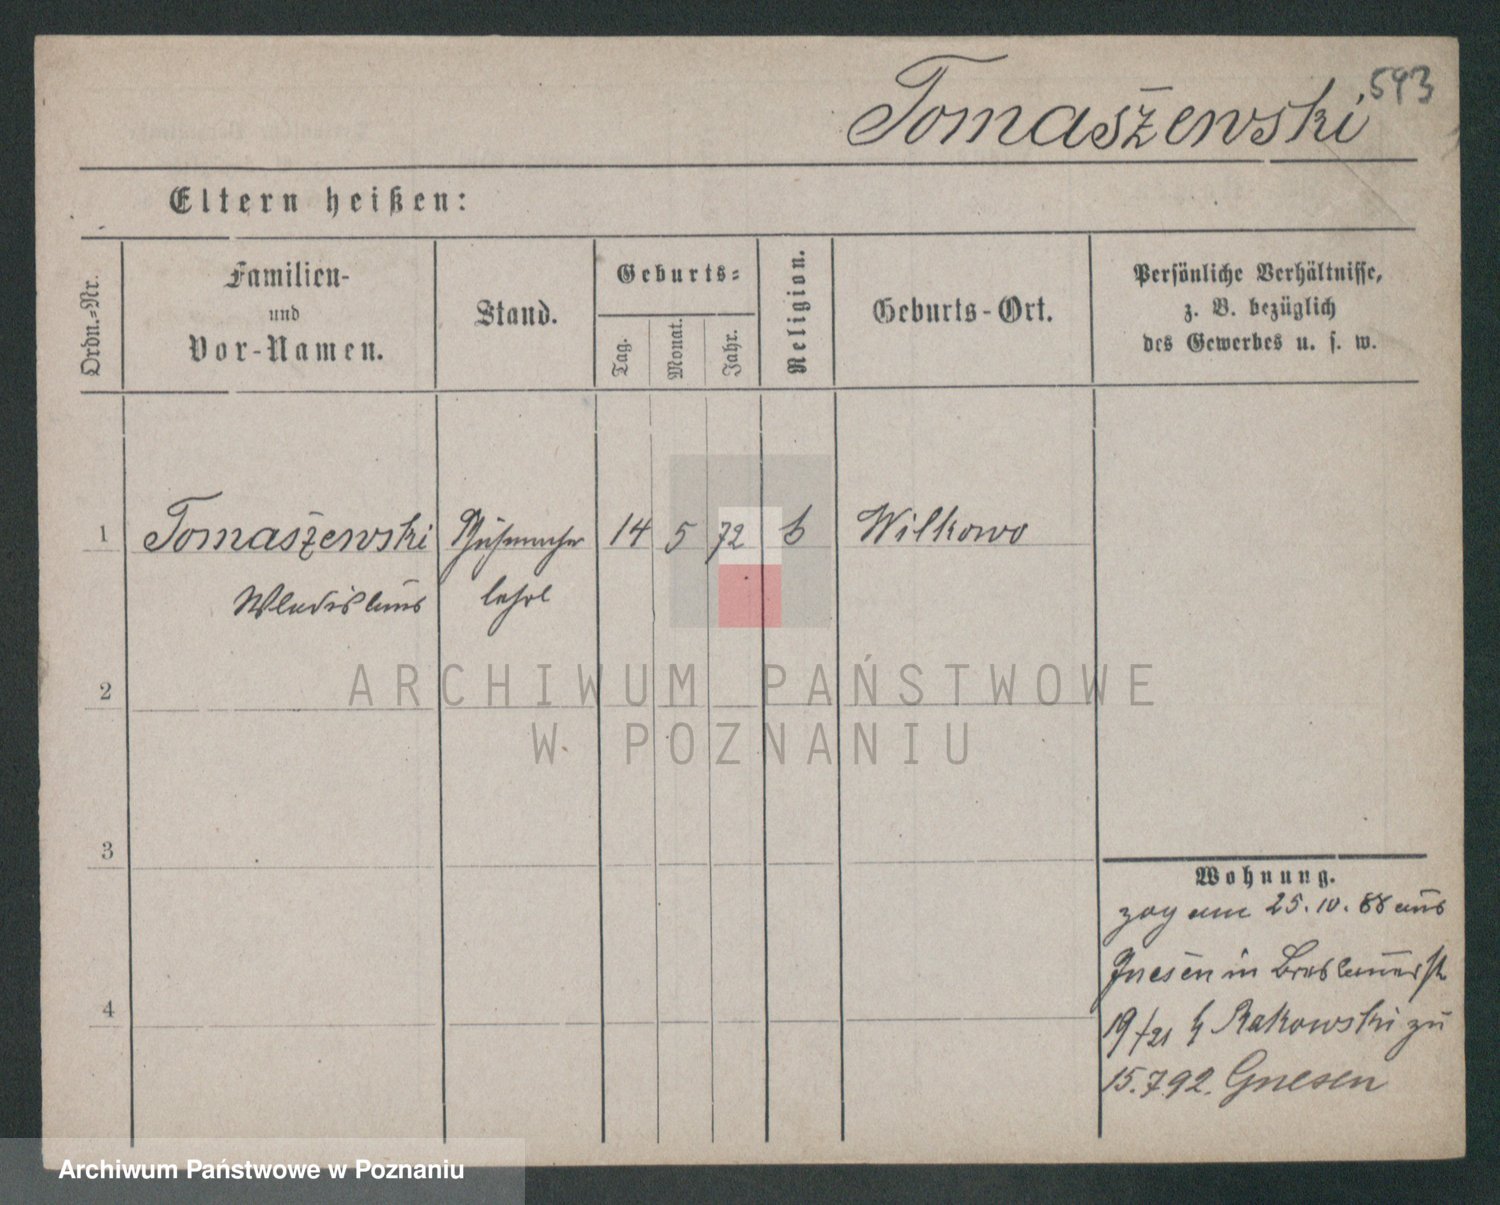 593
Tomaszewski
Eltern heißen:
Ordn.-Nr.
Familien-
und
Vor-Namen.
Stand.
Geburts-
Tag.
Monat.
Jahr.
Religion.
Geburts-Ort.
Persönliche Verhältnisse,
z. B. bezüglich
des Gewerbes u. s. w.
1 Tomaszewski Schuhmacher 14 5 72 Wilkowo
Wladislaus lehrl
2
3
4
Wohnung.
zog am 25.10.88 aus
Gnesen in Breslauerstr
19/21 Rakowski zu
15.7.92. Gnesen
ARCHIWUM PAŃSTWOWE
W POZNANIU
Archiwum Państwowe w Poznaniu